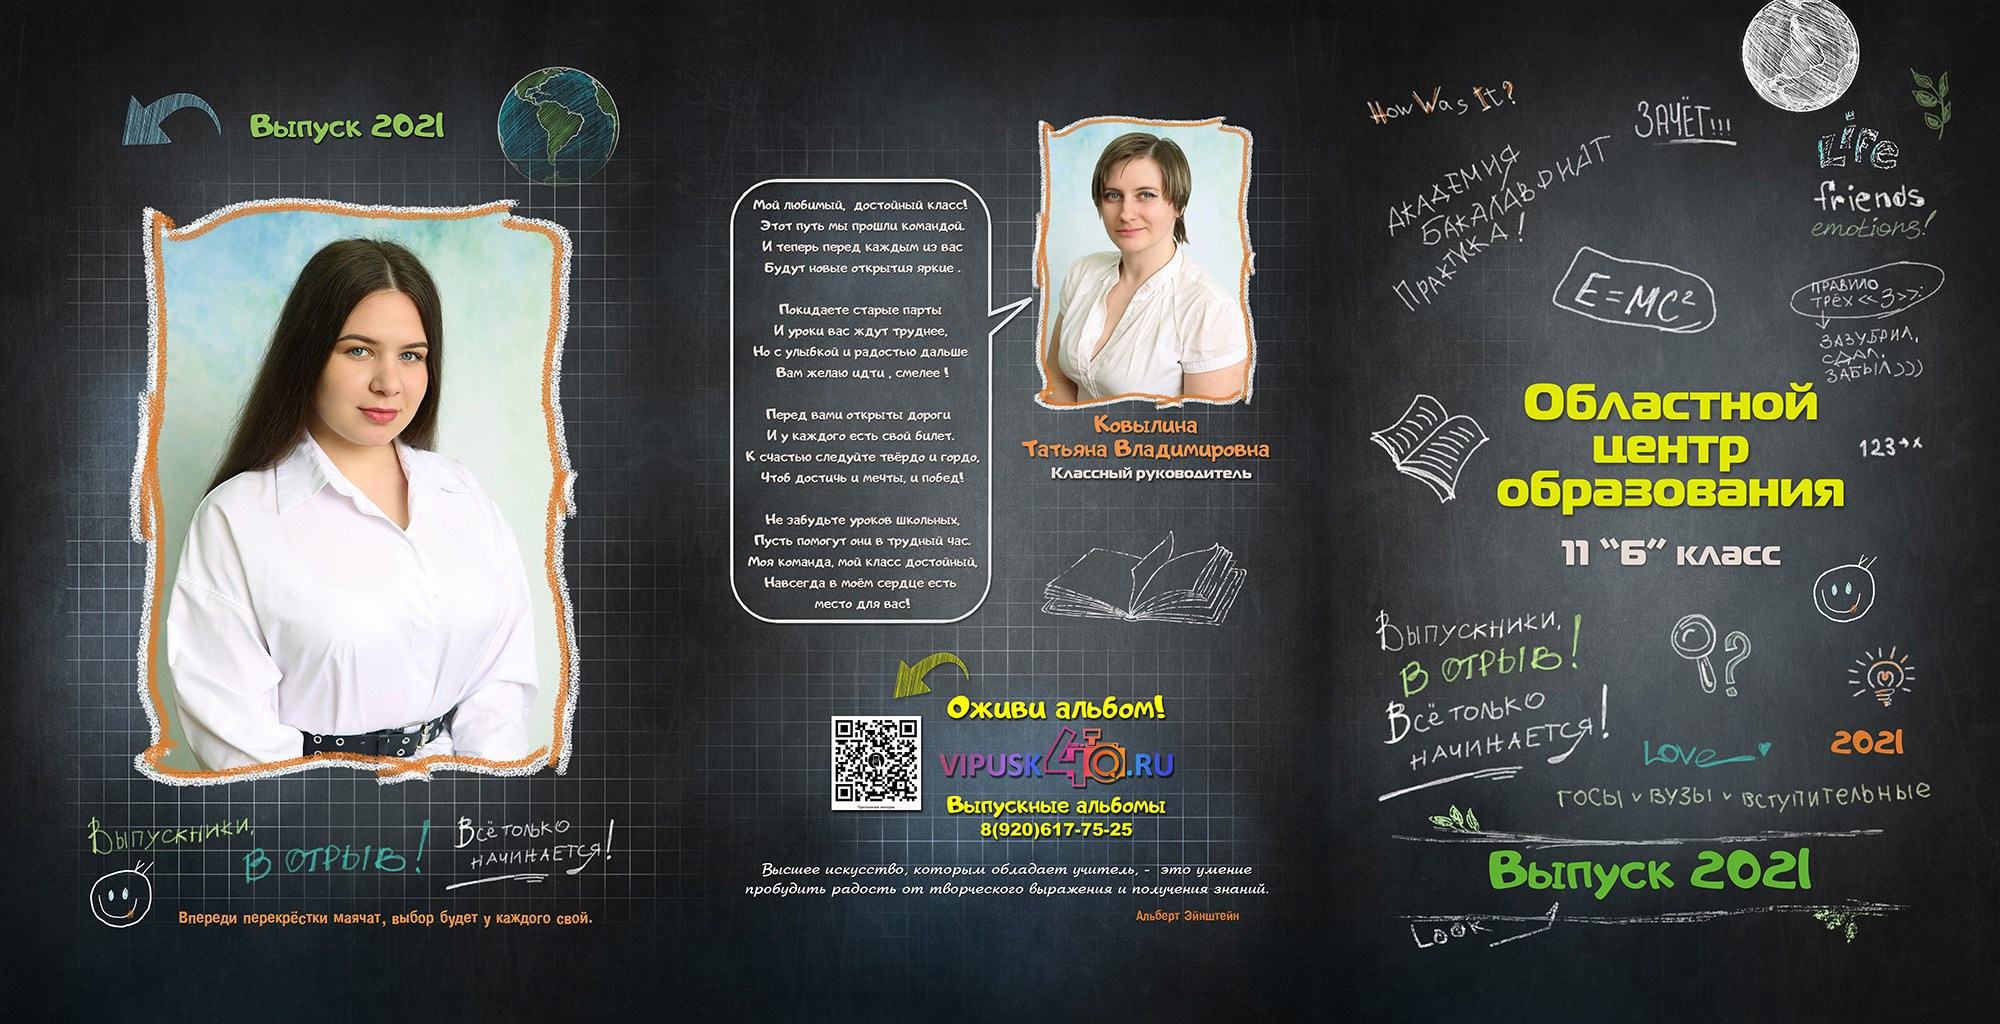 Выпуск 2021
Выпускники,
в отрыв!
Всё только
начинается!
Впереди перекрёстки маячат, выбор будет у каждого свой.
Мой любимый, достойный класс!
Этот путь мы прошли командой.
И теперь перед каждым из вас
Будут новые открытия яркие .
Покидаете старые парты
И уроки вас ждут труднее,
Но с улыбкой и радостью дальше
Вам желаю идти , смелее !
Перед вами открыты дороги
И у каждого есть свой билет.
К счастью следуйте твёрдо и гордо,
Чтоб достичь и мечты, и побед!
Не забудьте уроков школьных,
Пусть помогут они в трудный час.
Моя команда, мой класс достойный,
Навсегда в моём сердце есть
место для вас!
Ковылина
Татьяна Владимировна
Классный руководитель
Оживи альбом!
VIPUSK40.RU
Выпускные альбомы
8(920)617-75-25
Высшее искусство, которым обладает учитель, - это умение
пробудить радость от творческого выражения и получения знаний.
Альберт Эйнштейн
How Was It?
ЗАЧЁТ!!!
Life
friends
emotions!
АКАДЕМИЯ
БАКАЛАВРИАТ
ПРАКТИКА!
E=MC²
ПРАВИЛО
ТРЁХ <<З>>:
ЗАЗУБРИЛ,
СДАЛ,
ЗАБЫЛ)))
Областной
центр
образования
123→x
11 “Б” класс
Выпускники,
в отрыв!
Всё только
начинается!
?
Love
2021
ГОСЫ v ВУЗЫ v ВСТУПИТЕЛЬНЫЕ
Выпуск 2021
Look